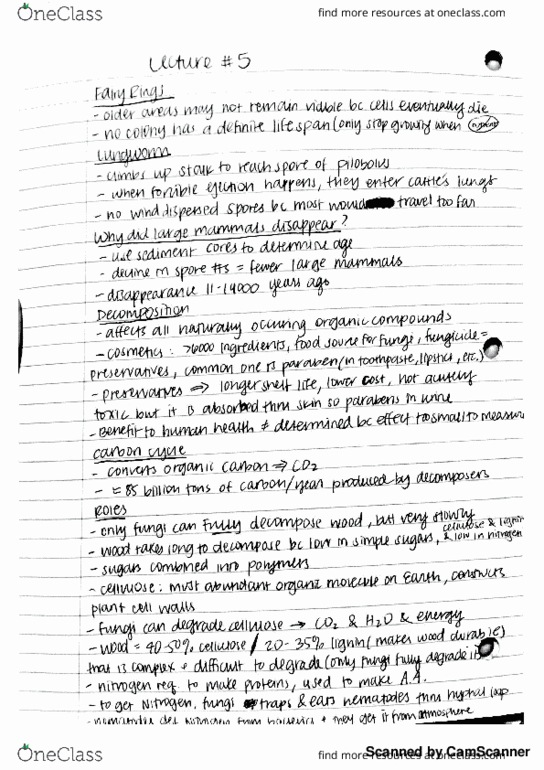 OneClass
find more resources at oneclass.com
Lecture #5
Fairy Rings
- older areas may not remain visible bc cells eventually die
- no colony has a definite lifespan (only stop growing when
Lungworm
- climbs up stalk to reach spore of pilobolus
- when forcible ejection happens, they enter cattle's lungs
- no wind dispersed spores bc most would travel too far
Why did large mammals disappear?
- use sediment cores to determine age
- decline in spore #s = fewer large mammals
- disappearance 11-14000 years ago
Decomposition
- affects all naturally occuring organic compounds
- cosmetics: >6000 ingredients, food source for fungi, fungicide =
preservatives, common one is paraben (in toothpaste, lipstick, etc.)
- preservatives ⇒ longer shelf life, lower cost, not acutely
toxic but it is absorbed thru skin so parabens in urine
- Benefit to human health ≠ determined bc effect too small to measure
Carbon cycle
- converts organic carbon → CO2
- ≈ 85 billion tons of carbon/year produced by decomposers
Roles
- only fungi can fully decompose wood, but very slowly
- wood takes long to decompose bc low in simple sugars, cellulose & lignin & low in nitrogen
- sugars combined into polymers
- cellulose: most abundant organic molecule on Earth, constructs
plant cell walls
- Fungi can degrade cellulose → CO2 & H2O & energy
- wood = 40-50% cellulose / 20-35% lignin (makes wood durable)
that is complex + difficult to degrade (only fungi fully degrade it)
- nitrogen req. to make proteins, used to make A.A.
- to get Nitrogen, fungi traps & eats nematodes thru hyphal loop
- nematodes get nitrogen from bacteria & they get it from atmosphere
OneClass
find more resources at oneclass.com
Scanned by CamScanner